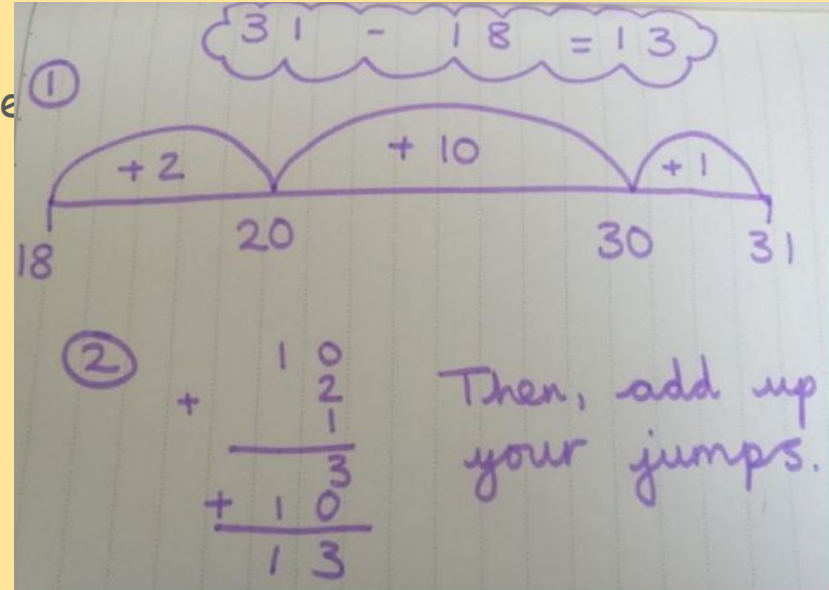 31 - 18 = 13
e
①
+ 2 + 10 + 1
18 20 30 31
②
1 0
+ 2
1
3
+ 1 0
1 3
Then, add up
your jumps.